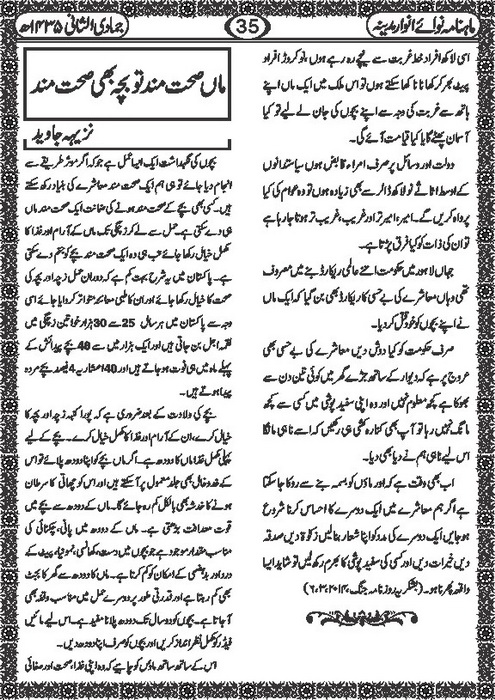 ماہنامہ نوائے انوار مدینہ
35
جمادی الثانی ۱۴۳۵ھ
اسی لاکھ افراد خط غربت سے نیچے رہ رہے ہوں، نو کروڑ افراد
پیٹ بھر کر کھانا نا کھا سکتے ہوں تو اس ملک میں ایک ماں اپنے
ہاتھ سے غربت کی وجہ سے اپنے بچوں کی جان لے لیے تو کیا
آسمان پھٹے گا یا کیا قیامت آئے گی۔
دولت اور وسائل پر صرف امراء قابض ہوں سیاستدانوں
کے اوسط اثاثے نو لاکھ ڈالر سے بھی زیادہ ہوں تو وہ عوام کی کیا
پرواہ کریں گے۔ امیر، امیر تر اور غریب، غریب تر ہوتا جا رہا ہے
تو ان کی ذات کو کیا فرق پڑتا ہے۔
جہاں لاہور میں حکومت اتنے عالمی ریکارڈ بنے میں مصروف
تھی وہاں معاشرے کی بے حسی کا ریکارڈ بھی بن گیا کہ ایک ماں
نے اپنے بچوں کو خود قتل کر دیا۔
صرف حکومت کو کیا دوش دیں معاشرے کی بے حسی بھی
عروج پر ہے کہ دیوار کے ساتھ جڑے گھر میں کوئی تین دن سے
بھوکا ہے کچھ معلوم نہیں اور وہ اپنی سفید پوشی میں کسی سے کچھ
مانگ نہیں رہا تو آپ بھی کنارہ کشی ہی رکھیں کہ اسے نا ہی مانگا
اس لیے نا ہی ہم نے دیا بھی دیا۔
اب بھی وقت ہے کہ اور ماؤں کو بسمہ بننے سے روکا جا سکتا
ہے اگر ہم معاشرے میں ایک دوسرے کا احساس کرنا شروع
ہو جائیں ایک دوسرے کی مدد کو اپنا شعار بنا لیں زکوٰۃ دیں صدقہ
دیں خیرات دیں اور کسی کی سفید پوشی کا بھرم رکھ لیں تو شاید ایسا
واقعہ پھر نا ہو۔ (بشکریہ روزنامہ جنگ،
ماں صحت مند تو بچہ بھی صحت مند
نزیہہ جاوید
بچوں کی نگہداشت ایک ایسا عمل ہے جو کہ اگر موثر طریقے سے
انجام دیا جائے تو ہی ہم ایک صحت مند معاشرے کی بنیاد رکھ سکتے
ہیں۔ کسی بھی بچے کے صحت مند ہونے کی ضمانت ایک صحت مند ماں
ہی دے سکتی ہے۔ حمل سے لے کر زچگی تک ماں کے آرام اور غذا کا
مکمل خیال رکھا جائے تب ہی وہ ایک صحت مند بچے کو جنم دے سکتی
ہے۔ پاکستان میں یہ شرح بہت کم ہے کہ دوران حمل زچہ اور بچہ کی
صحت کا خیال رکھا جائے اور ان کا طبی معائنہ متواتر کروایا جائے اسی
وجہ سے پاکستان میں ہر سال 25 سے 30 ہزار خواتین زچگی میں
لقمہ اجل بن جاتی ہیں اور ایک ہزار میں سے 40 بچے پیدائش کے
پہلے ماہ میں ہی فوت ہو جاتے ہیں اور 40 اعشاریہ 4 فیصد بچے مردہ
پیدا ہوتے ہیں۔
بچے کی ولادت کے بعد ضروری ہے کہ پورا کنبہ زچہ اور بچہ کا
خیال کرے، ان کے آرام اور غذا کا مکمل خیال کرے۔ بچے کے لیے
پہلی مکمل غذا ماں کا دودھ ہے۔ اگر ماں بچے کو اپنا دودھ پلائے تو اس
کے خدوخال بھی جلد معمول پر آسکتے ہیں اور اس کو چھاتی کا سرطان
ہونے کا خدشہ بھی بالکل کم رہ جائے گا۔ ماں کے دودھ سے بچے میں
قوت مدافعت بڑھتی ہے۔ ماں کے دودھ میں پانی، چکنائی کی
مناسب مقدار موجود ہے جو بچوں میں دست، کھانسی، نمونیا، پیٹ کے
درد اور بدہضمی کے امکان کو کم کرتا ہے۔ ماں کا دودھ سے گھر کا بجٹ
بھی کم رہتا ہے اور قدرتی طور پر دوسرے حمل میں مناسب وقفہ بھی
آ جاتا ہے۔ بچوں کو دو سال تک دودھ پلانا مفید ہے۔ اس لیے مائیں
فیڈر کو مکمل نظر انداز کریں اور بچوں کو صرف اپنا دودھ دیں۔
اس کے ساتھ ساتھ ماؤں کو چاہیے کہ وہ اپنی غذا، صحت اور صفائی